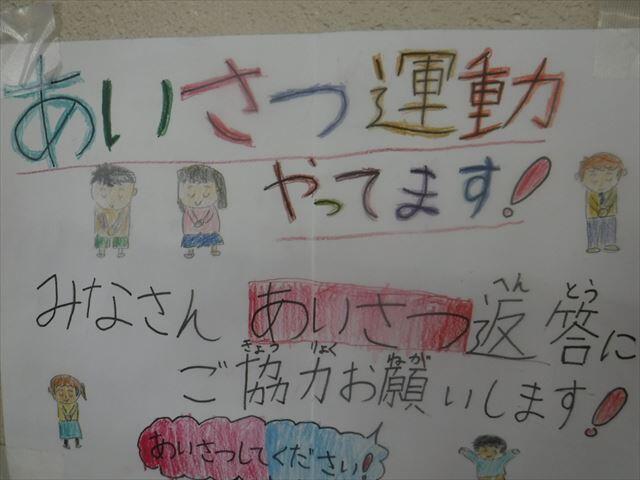 あいさつ運動
やってます!
みなさん あいさつ返答に
へん とう
ご協力お願いします!
きょう りょく ねが
あいさつしてください!